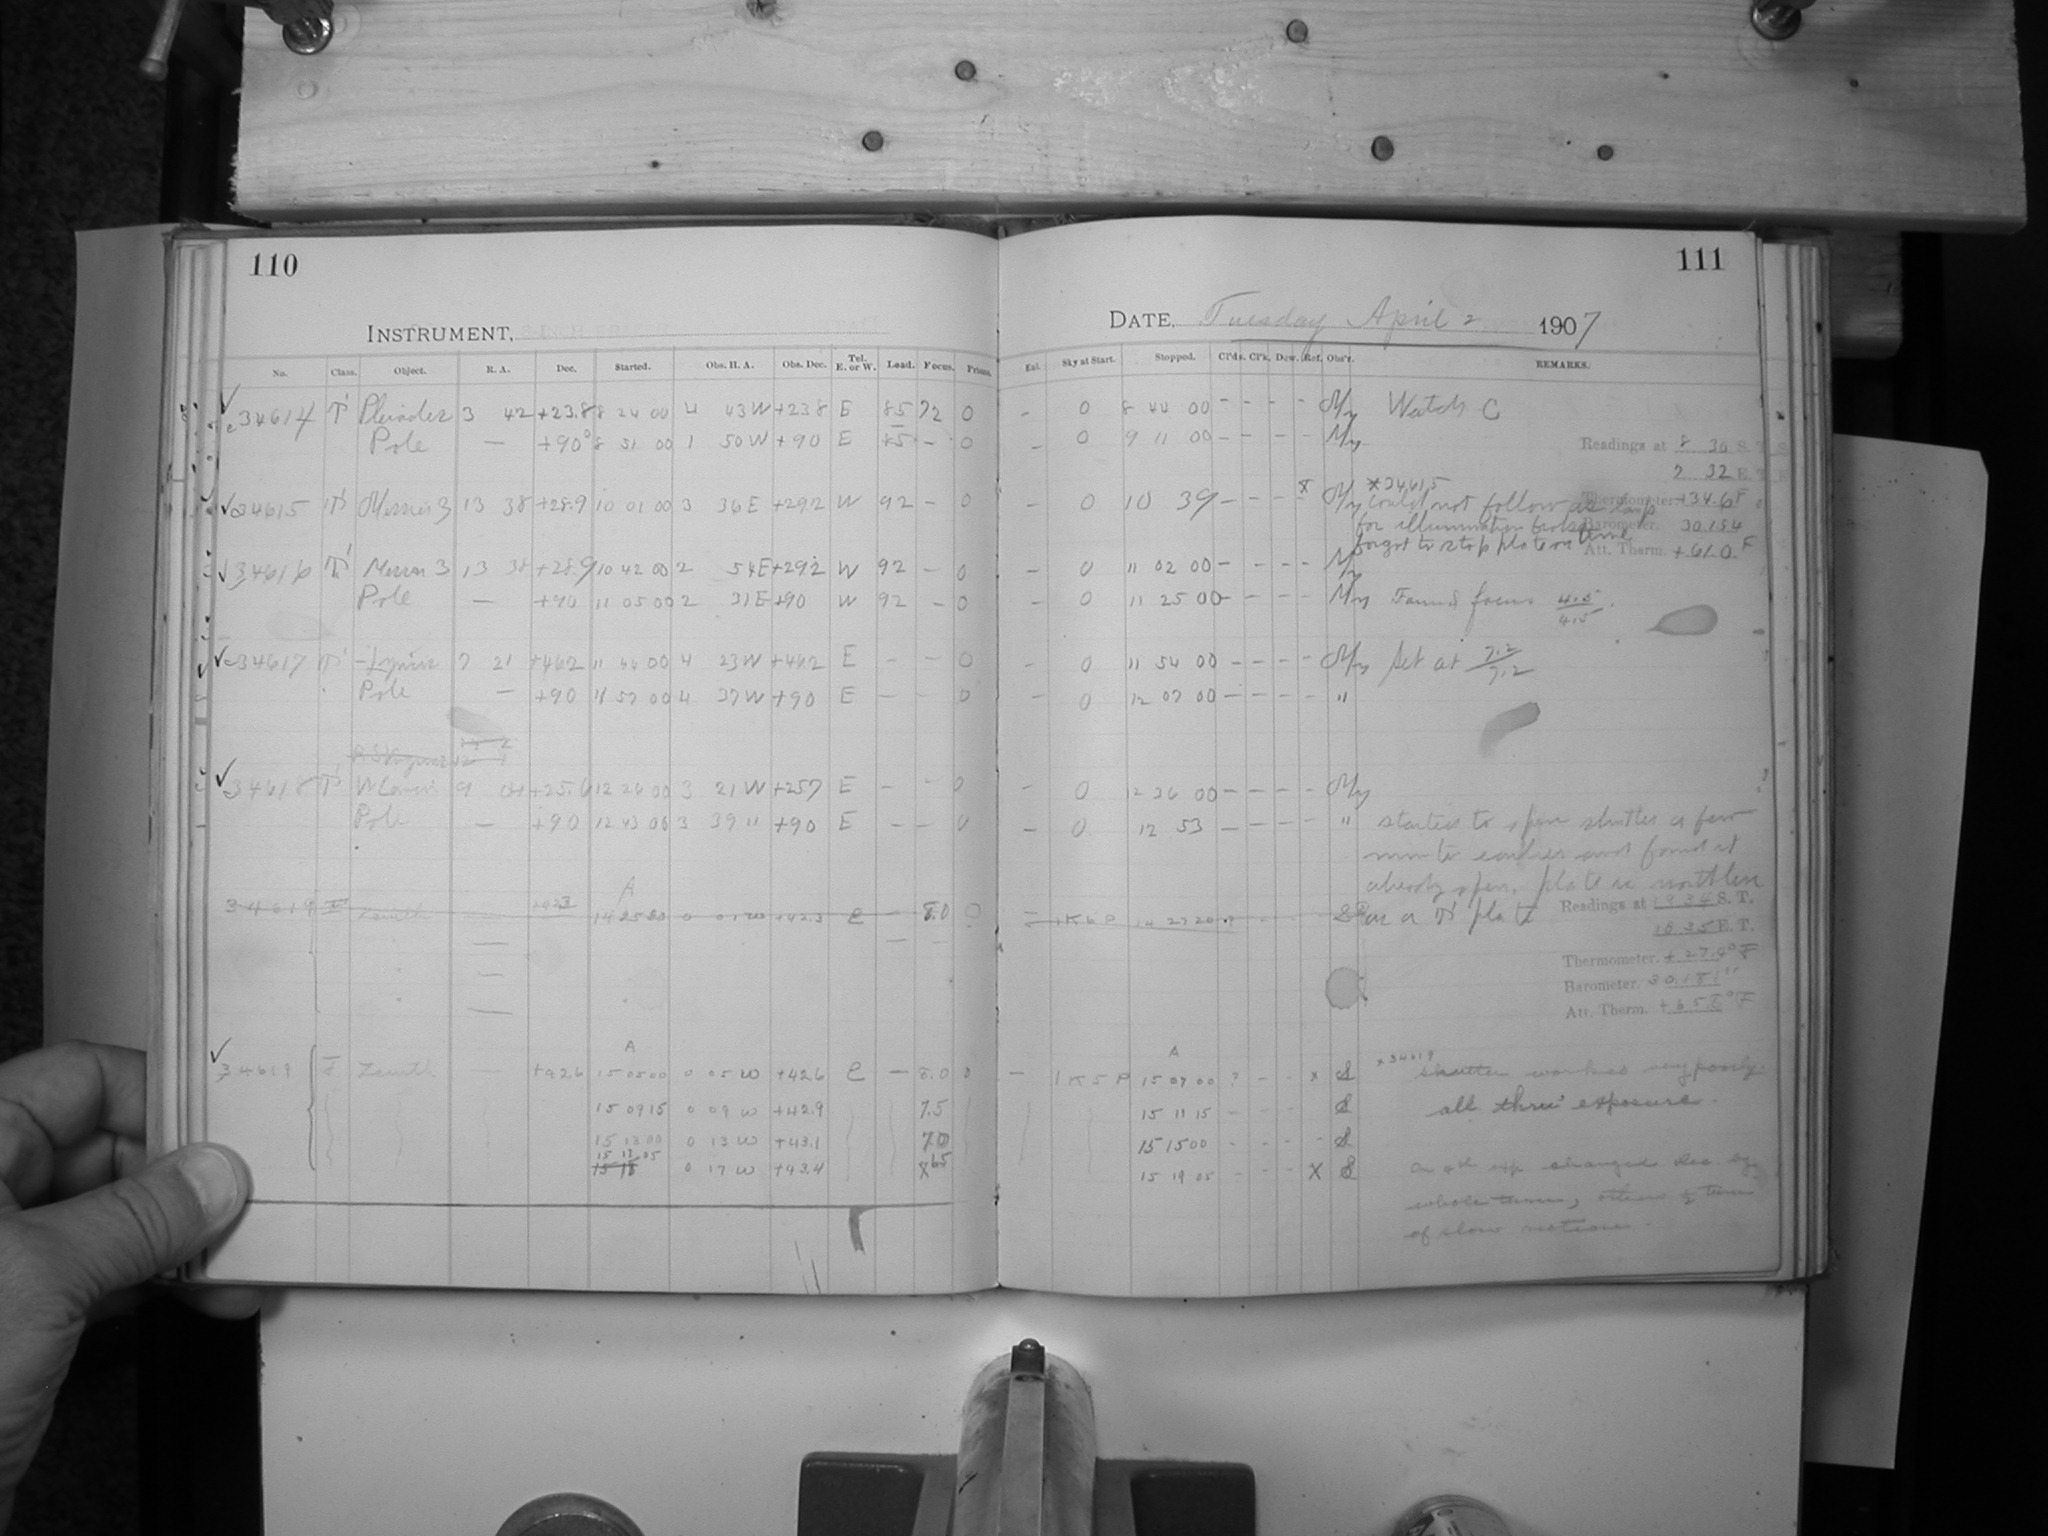 110
INSTRUMENT,
No. Class. Object. R. A. Dec. Started. Obs. H. A. Obs. Dec. Tel. E. or W. Load. Focus. Prisms.
34614 Pleiades 3 42 +23.8 8 24 00 4 43 W +23.8 E 85 72 0
Pole — +90° 8 51 00 1 50 W +90 E 85 - 0
34615 Messier 3 13 38 +28.9 10 01 00 3 36 E +29.2 W 92 - 0
34616 Messier 3 13 38 +28.9 10 42 00 2 54 E +29.2 W 92 - 0
Pole — +90 11 05 00 2 31 E +90 W 92 - 0
34617 7 21 +46.2 11 44 00 4 23 W +46.2 E - - 0
Pole — +90 11 57 00 4 37 W +90 E - - 0
34618 9 +25.6 12 26 00 3 21 W +25.7 E - - 0
Pole — +90 12 43 00 3 39 " +90 E - - 0
A
34619 Zenith +42.3 0 01 W +42.3 E - 8.0
A
34619 Zenith — +42.6 15 05 00 0 05 W +42.6 E — 8.0 0
15 09 15 0 09 W +42.9 7.5
15 13 00 0 13 W +43.1 7.0
15 17 05
15 18 0 17 W +43.4 6.5
111
DATE, Tuesday April 2 1907
Sky at Start. Stopped. Cl'ds. Cl'k. Dew. Ref. Obs'r. REMARKS.
- 0 8 44 00 - - - - My Watch C
- 0 9 11 00 - - - - My
Readings at 8 30 S. T.
7 32 E. T.
- 0 10 39 - - - x My *34615
Could not follow as lamp
for illumination broke
forgot to stop plate on time
Thermometer +34.6 F
Barometer. 30.154
Att. Therm. +61.0 F
- 0 11 02 00 - - - - My
- 0 11 25 00 - - - - My Found focus 4.5
4.5
- 0 11 54 00 - - - - My Set at 7.2
7.2
- 0 12 07 00 - - - - "
- 0 12 36 00 - - - - My
- 0 12 53 - - - - " started to open shutter a few
minutes earlier and found it
already open. plate is worthless
as a plate
1 K 5 P 14 27 20 S
Readings at 19 34 S. T.
18 35 E. T.
Thermometer. + 27.4° F
Barometer. 30.181"
Att. Therm. + 65.8° F
A
— 1 K 5 P 15 07 00 ? - - x S *34619 Shutter worked very poorly
all thru' exposure.
15 11 15 - - - S
15 15 00 - - - S
15 19 05 - - X S On 4th exp. changed Dec. by
whole turn, others ½ turn
of slow motion. -